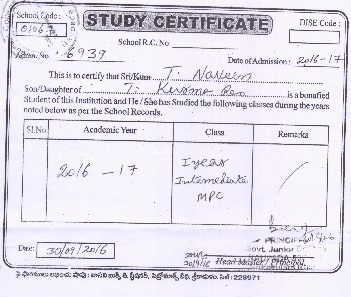 School Code :
STUDY CERTIFICATE
DISE Code :
School R.C. No.
Admn. No 6939
Date of Admission : 2016-17
This is to certify that Sri/Kum T. Naveen
Son/Daughter of T. Rao is a bonafied
Student of this Institution and He / She has Studied the following classes during the years
noted below as per the School Records.
Sl.No Academic Year Class Remarks
2016 - 17 I year
Intermediate
MPC
PRINCIPAL
Govt. Junior
Date: 30/09/2016 Head Master / Principal